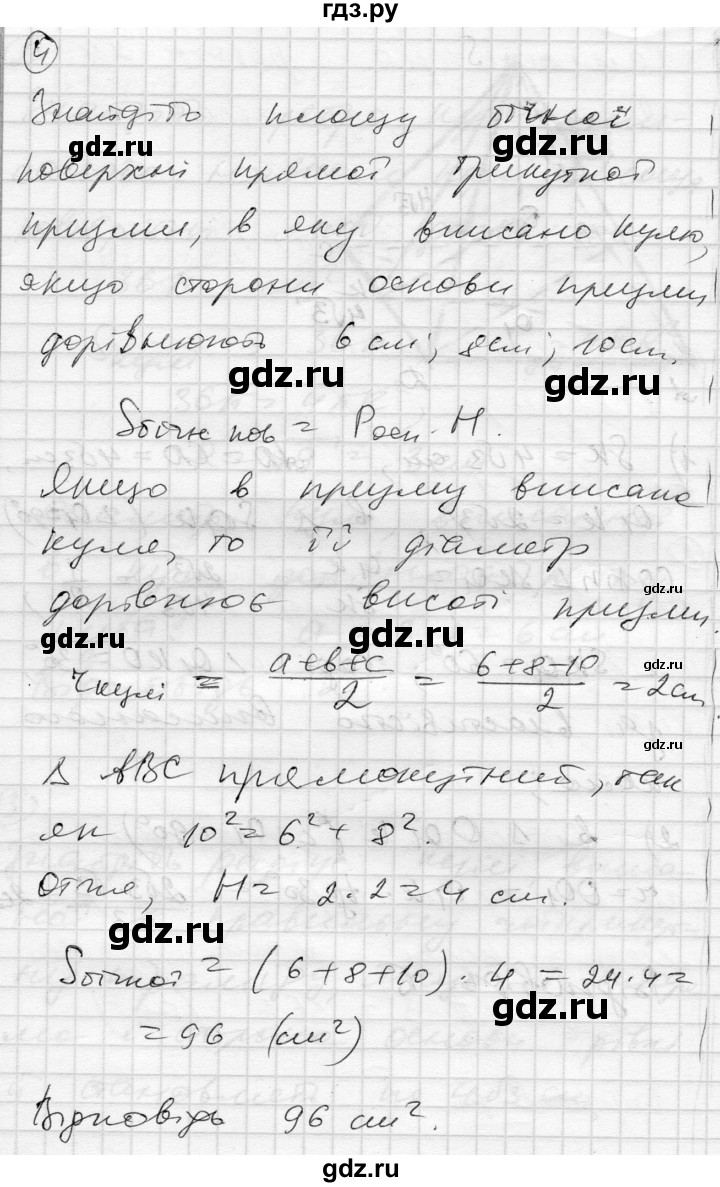 гдз.ру
4
Знайдіть площу бічної
gdz.ru
gdz.ru
поверхні прямої трикутної
призми, в яку вписано кулю,
якщо сторони основи призми
дорівнюють 6 см, 8 см, 10 см.
gdz.ru
gdz.ru
Sбічн пов = Pосн · H.
Якщо в призму вписана
куля, то її діаметр
gdz.ru
дорівнює висоті призми.
gdz.ru
gdz.ru
rкулі = a+b+c/2 = 6+8-10/2 = 2 см
gdz.ru
Δ ABC прямокутний, так
як 10² = 6² + 8².
Отже, H = 2·2 = 4 см.
gdz.ru
Sбічної = (6+8+10)·4 = 24·4 =
gdz.ru
= 96 (см²)
Відповідь 96 см².
gdz.ru